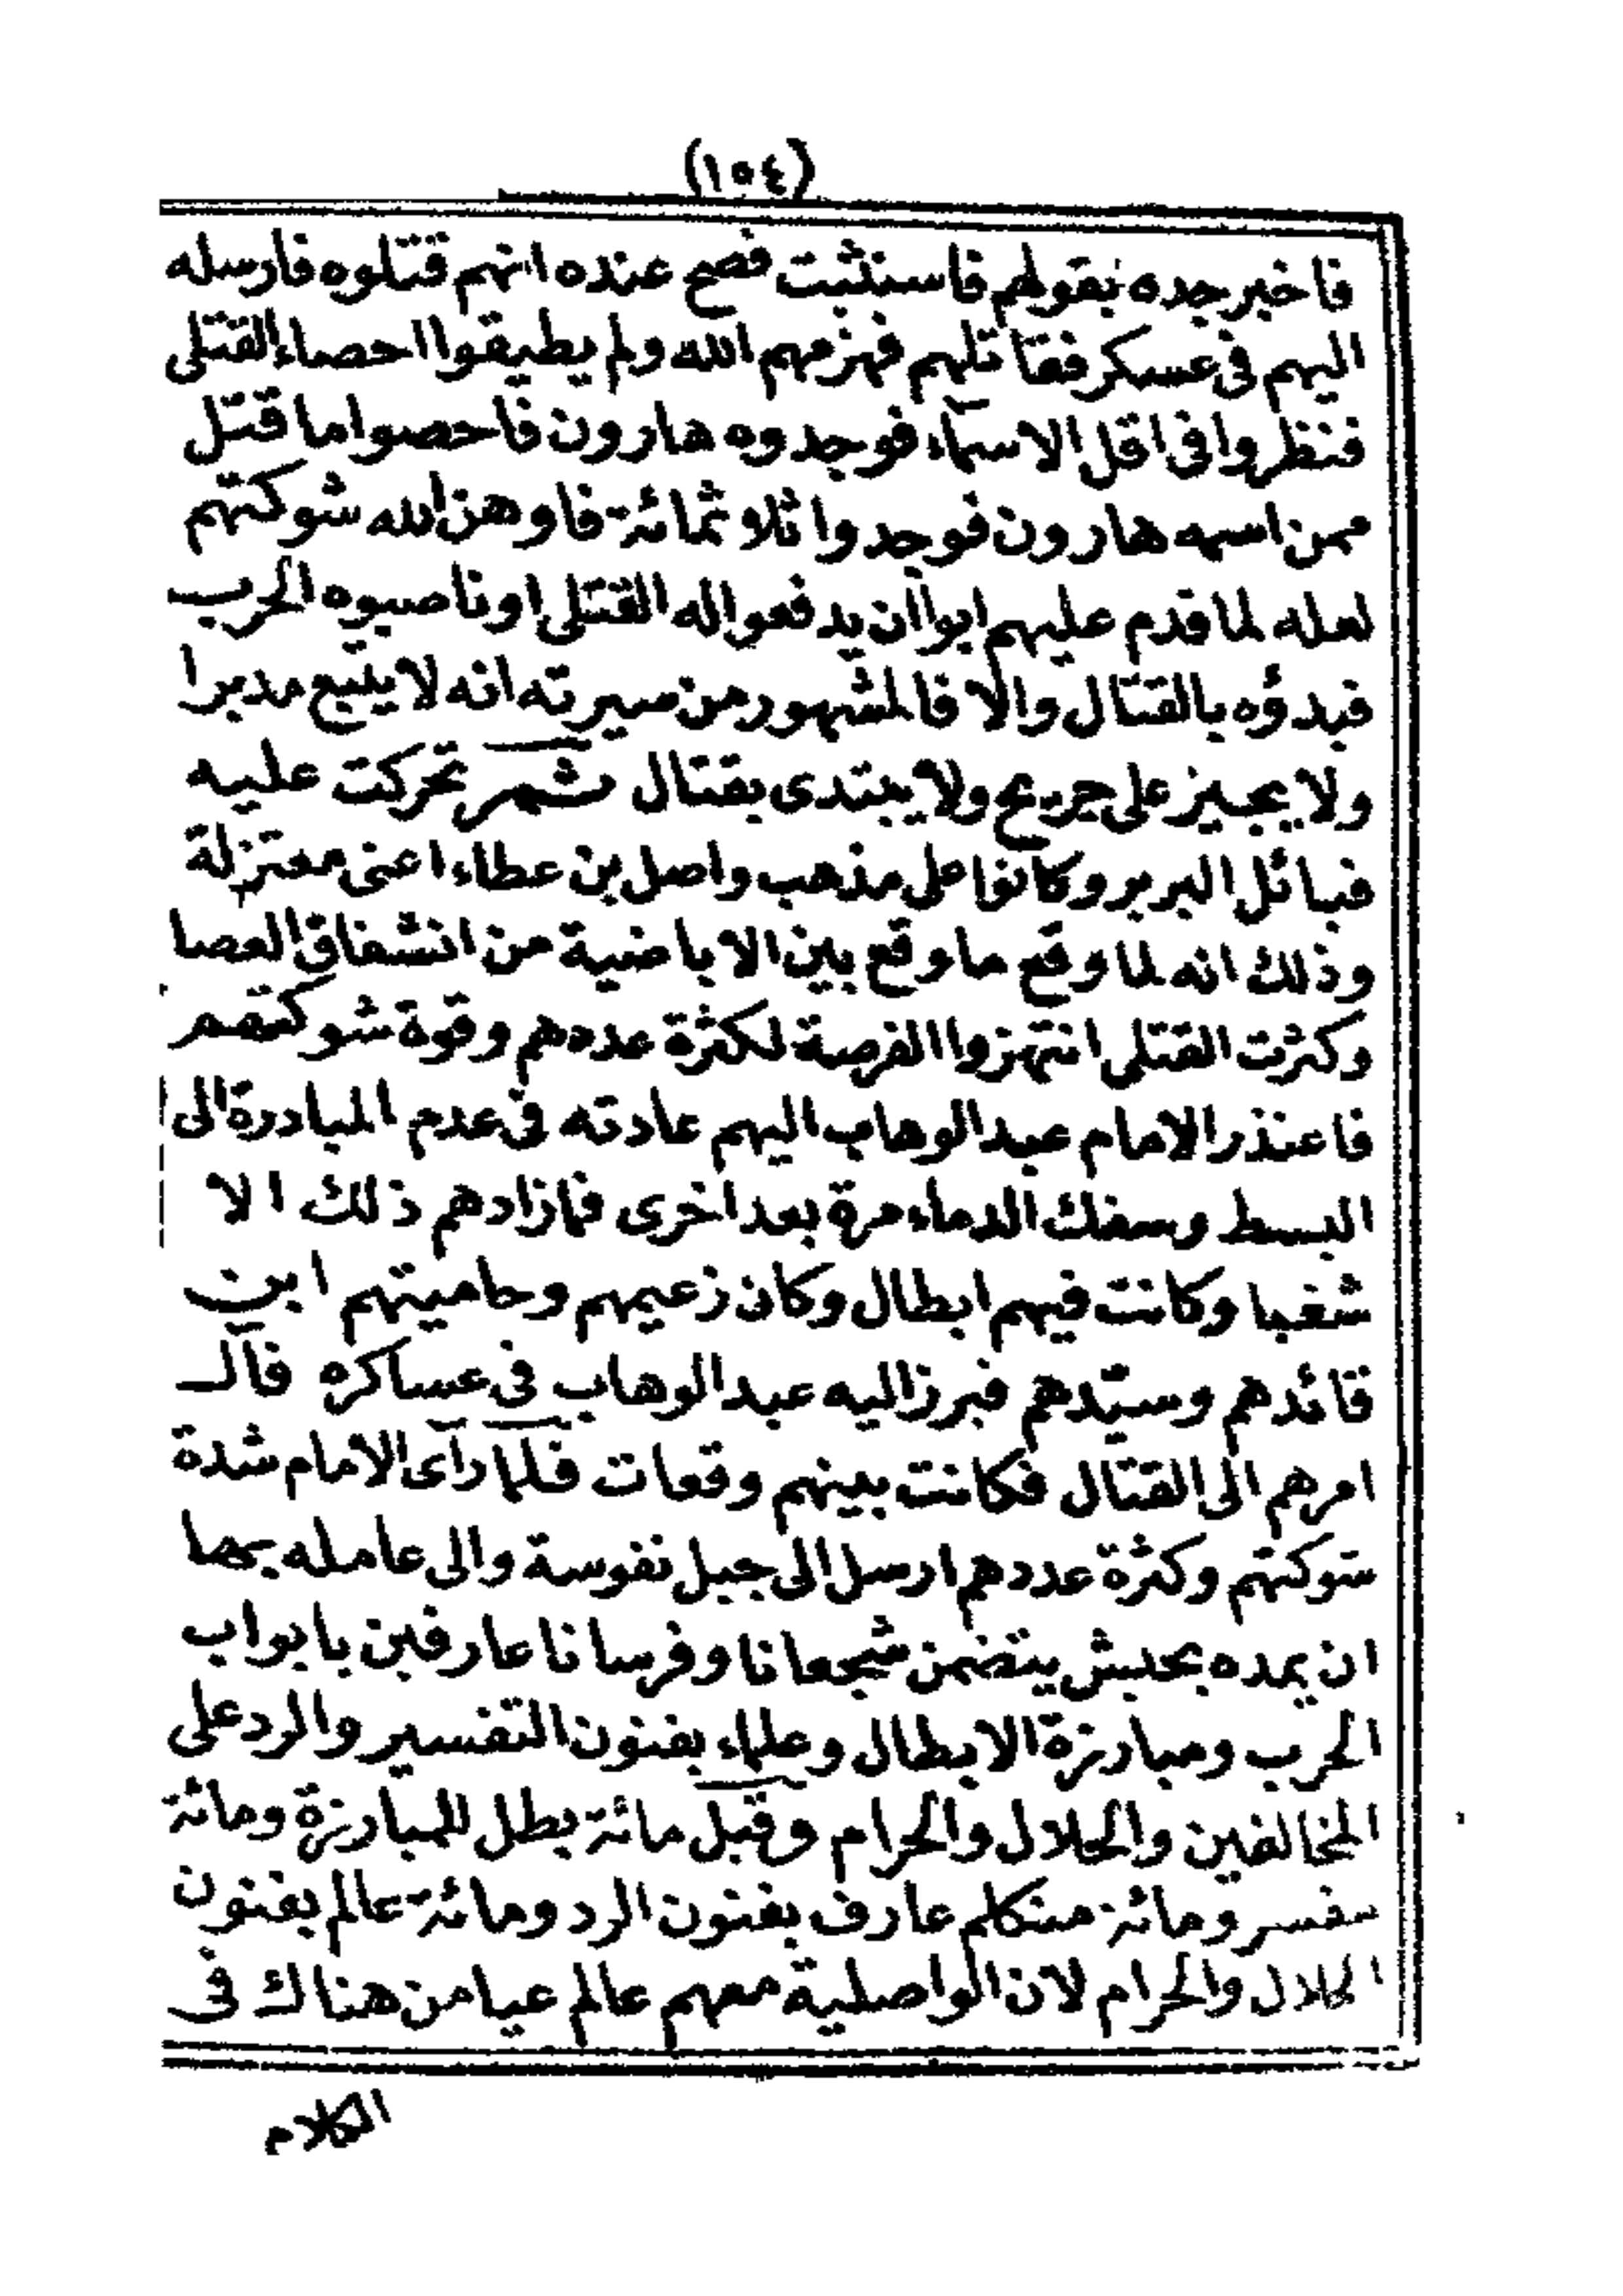 (١٥٤)
فاخبر جده بقولهم فاستثبت فصح عنده انهم قتلوه فارسله
اليهم فى عسكر فقاتلهم فهزمهم الله ولم يطيقوا احصاء القتلى
فنظروا فى اقل الاسمآء فوجدوه هارون فاحصوا ما قتل
ممن اسمه هارون فوجدوا ثلاثمائة فاوهن الله شوكتهم
لعله لما قدم عليهم ابوا أن يدفعوا له القتلى او ناصبوه الحرب
فبدؤه بالقتال والا فالمشهور من سيرته انه لا يتبع مدبرا
ولا يجيز على جريح ولا يبتدى بقتال ثم تحركت عليه
قبائل البربر وكانوا على مذهب واصل بن عطاء اعنى معتزلة
وذلك انه لما وقع ما وقع بين الاباضية من انشقاق العصا
وكثرت القتلى انتهزوا الفرصة لكثرة عددهم وقوة شوكتهم
فاعتذر الامام عبد الوهاب اليهم عادته فى عدم المبادرة الى
البسط وسفك الدماء مرة بعد اخرى فما زادهم ذلك الا
شغبا وكانت فيهم ابطال وكان زعيمهم وحاميتهم ابن
قائدهم وسيّدهم فبرز اليه عبد الوهاب فى عساكره فآل
امرهم الى القتال فكانت بينهم وقعات فلما رآى الامام شدة
شوكتهم وكثرة عددهم ارسل الى جبل نفوسة والى عامله بها
ان يمده بجيش يتضمن شجعانا وفرسانا عارفين بابواب
الحرب ومبارزة الابطال وعلماء بفنون التفسير والرد على
المخالفين والحلال والحرام وقيل مائة بطل للمبارزة ومائة
مفسر ومائة متكلم عارف بفنون الرد ومائة عالم بفنون
الحلال والحرام لان الواصلية معهم عالم عيا من هناك فى
الكلام